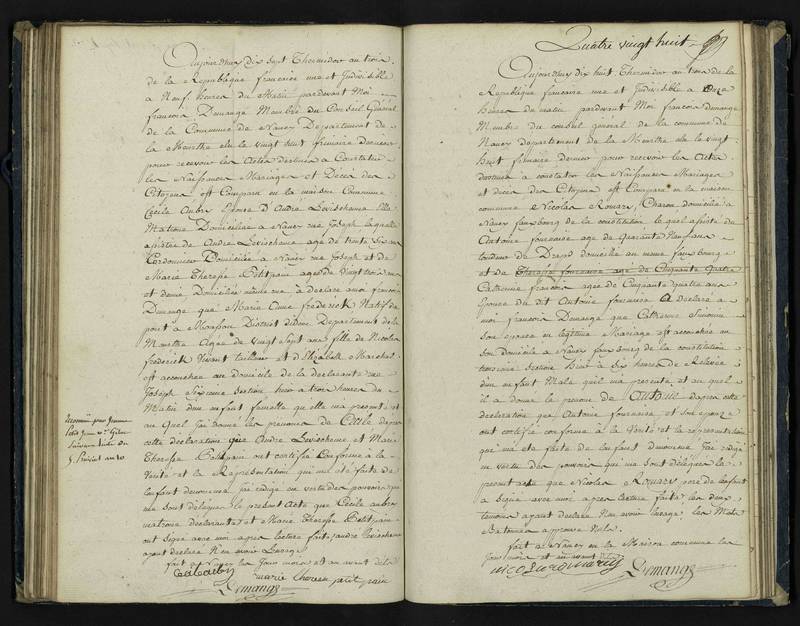 Aujourdhuy dix Sept Thermidor an trois
de la Republique francaise une et Indivisible
a Neuf heures du Matin pardevant Moi
francois Demange Membre du Conseil Général
de la Commune de Nancy Departement de
la Meurthe élu le vingt huit frimaire dernier
pour recevoir les Actes destinés a Constater
les Naissances Mariages et Décès des
Citoyens est Comparu en la maison Commune
Cecile Aubry Epouse d'André Levicheme
Matrone Domiciliée a Nancy rue Joseph laquelle
assistée de André Levicheme age de trente Six ans
Cordonnier Domicilié a Nancy rue Joseph et de
Marie Therese Petitpain agée de vingt trois ans
et demie Domiciliée même rue a déclaré a moi francois
Demange que Marie Anne frederick Native de
pont a Mousson District didem Departement de la
Meurthe Agée de vingt Sept ans fille de Nicolas
frederick Vivant tailleur et d'Elizabeth Marechal
est accouchée au domicile de la déclarante rue
Joseph Sixieme Section hier a trois heures du
Matin d'un enfant femelle qu'elle m'a presenté et
au quel J'ai donné les prenoms de Cecile dapres
cette déclaration que André Levicheme et Marie
Therese Petitpain ont certifié Conforme a la
Verité et la Représentation qui m'a été faite de
lenfant denommé j'ai rédigé en vertu des pouvoirs qui
me sont délégués le présent Acte que Cécile aubry
matrone declarante et Marie Therese Petitpain
ont signé avec moi apres lecture fait, andré Levicheme
ayant déclaré N'en avoir L'usage
fait a Nancy les Jour mois et an avant dits
marie therese petit pain
Demange
Reconnu pour
Suivant acte du
an 10
Quatre vingt huit
Aujourdhuy dix huit Thermidor an trois de la
Republique francaise une et Indivisible a onze
heures du matin pardevant Moi francois Demange
Membre du conseil général de la commune de
Nancy departement de la Meurthe élu le vingt
huit frimaire dernier pour recevoir les Actes
destinés a constater les Naissances Mariages
et décès des Citoyens est Comparu en la maison
commune Nicolas Charon domicilié a
Nancy fauxbourg de la constitution le quel assisté de
Antoine fourcaise age de Quarante Neuf ans
tondeur de Draps domicilié au meme fauxbourg
et de Therese fourcaise agée de Cinquante Quatre
Catherine francois agée de Cinquante quatre ans
Epouse du dit Antoine fourcaise a déclaré a
moi francois Demange que Catherine Simonin
son epouse en legitime Mariage est accouchée en
son domicile a Nancy faux bourg de la constitution
troisieme Section hier a six heures de Relevée
d'un enfant Male qu'il m'a presenté et au quel
il a donné le prenom de Antoine dapres cette
declaration que Antoine fourcaise et son epouse
ont certifié conforme a la Verité et la représentation
qui m'a été faite de lenfant denommé J'ai redigé
en vertu des pouvoirs qui me sont délégués le
present acte que Nicolas pere de lenfant
a signé avec moi apres lecture faite les deux
temoins ayant declaré N'en avoir L'usage les Mots
Batonnés approuvé Nuls.
fait a Nancy en la Maison commune les
Jour mois et an avant dits
Demange